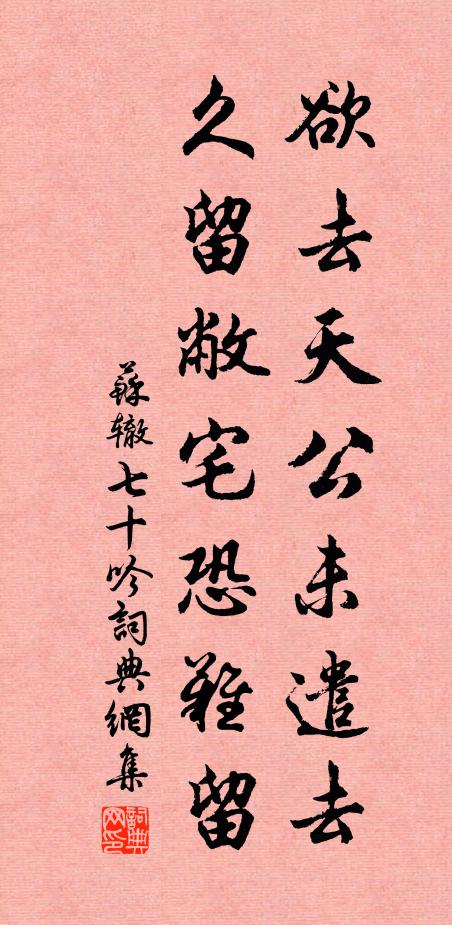 欲去天公未遣去
久留敝宅恐難留
蘇轍七十吟詞典網集
詞典网印